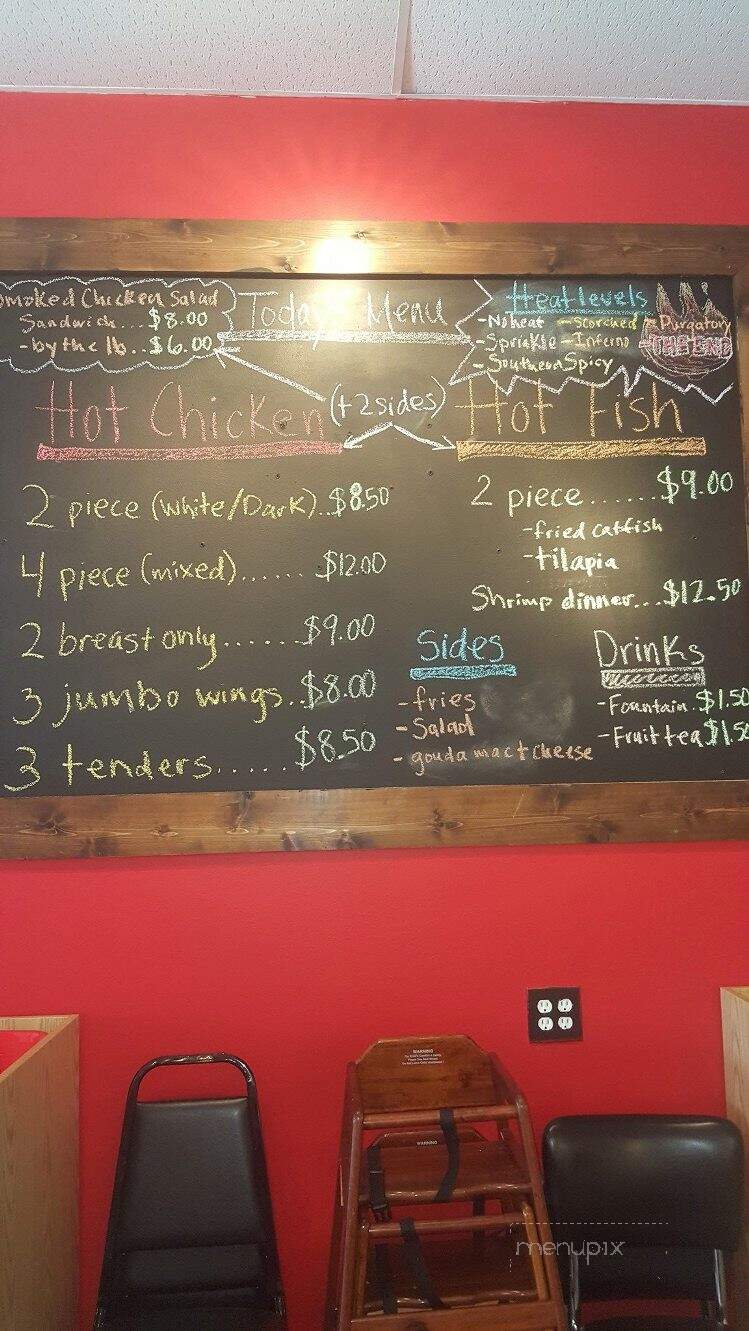 Smoked Chicken Salad
Sandwich...$8.00
-by the lb..$6.00
Today's Menu
Heat levels
-No heat -Scorched -Purgatory
-Sprinkle -Inferno THE END
-Southern Spicy
(+2 sides)
Hot Chicken
2 piece (white/Dark)..$8.50
4 piece (mixed)...... $12.00
2 breast only......$9.00
3 jumbo wings..$8.00
3 tenders......$8.50
Hot Fish
2 piece......$9.00
-fried catfish
-tilapia
Shrimp dinner...$12.50
Sides
-fries
-Salad
-gouda mac + cheese
Drinks
-Fountain.$1.50
-Fruit tea $1.50
WARNING
WARNING
menupix